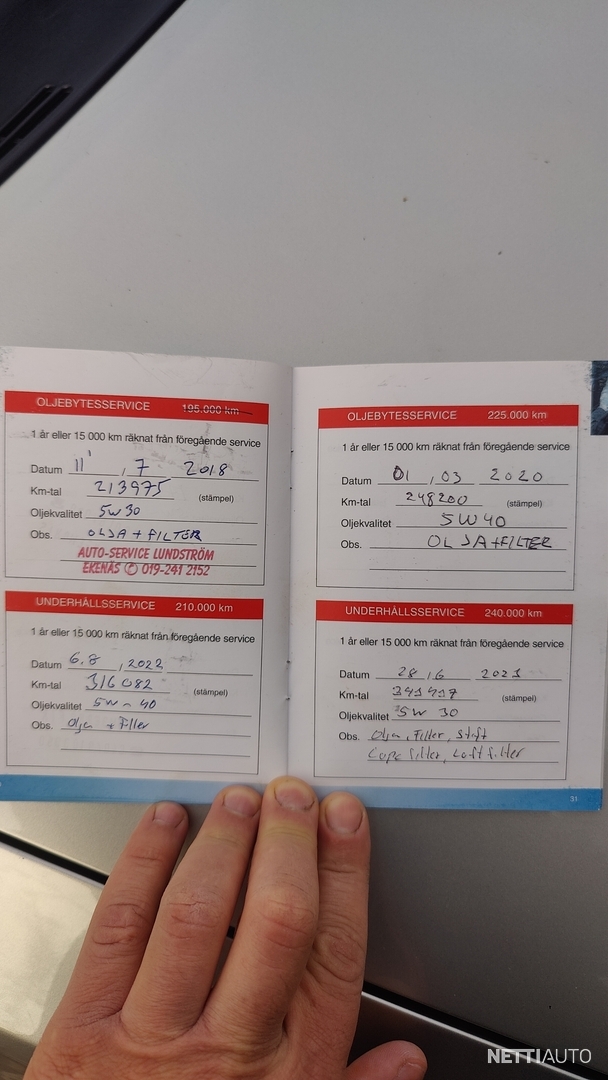 OLJEBYTESSERVICE 195.000 km
1 år eller 15 000 km räknat från föregående service
Datum 11 , 7 2018
Km-tal 213975 (stämpel)
Oljekvalitet 5W30
Obs. OLJA + FILTER
AUTO-SERVICE LUNDSTRÖM
EKENÄS ✆ 019-241 2152
UNDERHÅLLSSERVICE 210.000 km
1 år eller 15 000 km räknat från föregående service
Datum 6.8 , 2022
Km-tal 316082 (stämpel)
Oljekvalitet 5W-40
Obs. Olja + Filter
OLJEBYTESSERVICE 225.000 km
1 år eller 15 000 km räknat från föregående service
Datum 01 , 03 2020
Km-tal 248200 (stämpel)
Oljekvalitet 5W40
Obs. OLJA+FILTER
UNDERHÅLLSSERVICE 240.000 km
1 år eller 15 000 km räknat från föregående service
Datum 28 , 6 2023
Km-tal (stämpel)
Oljekvalitet 5W 30
Obs. Olja, Filter,
filter, Luftfilter
31
NETTIAUTO